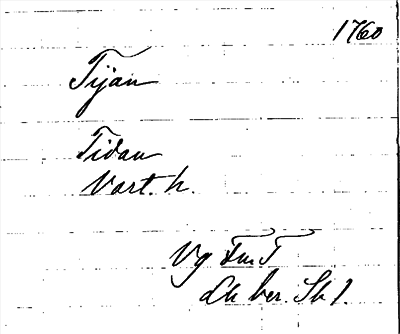 1760
Tijan
Tidan
Vart. h.
Vg FmT
Lk ber. Sk 1.